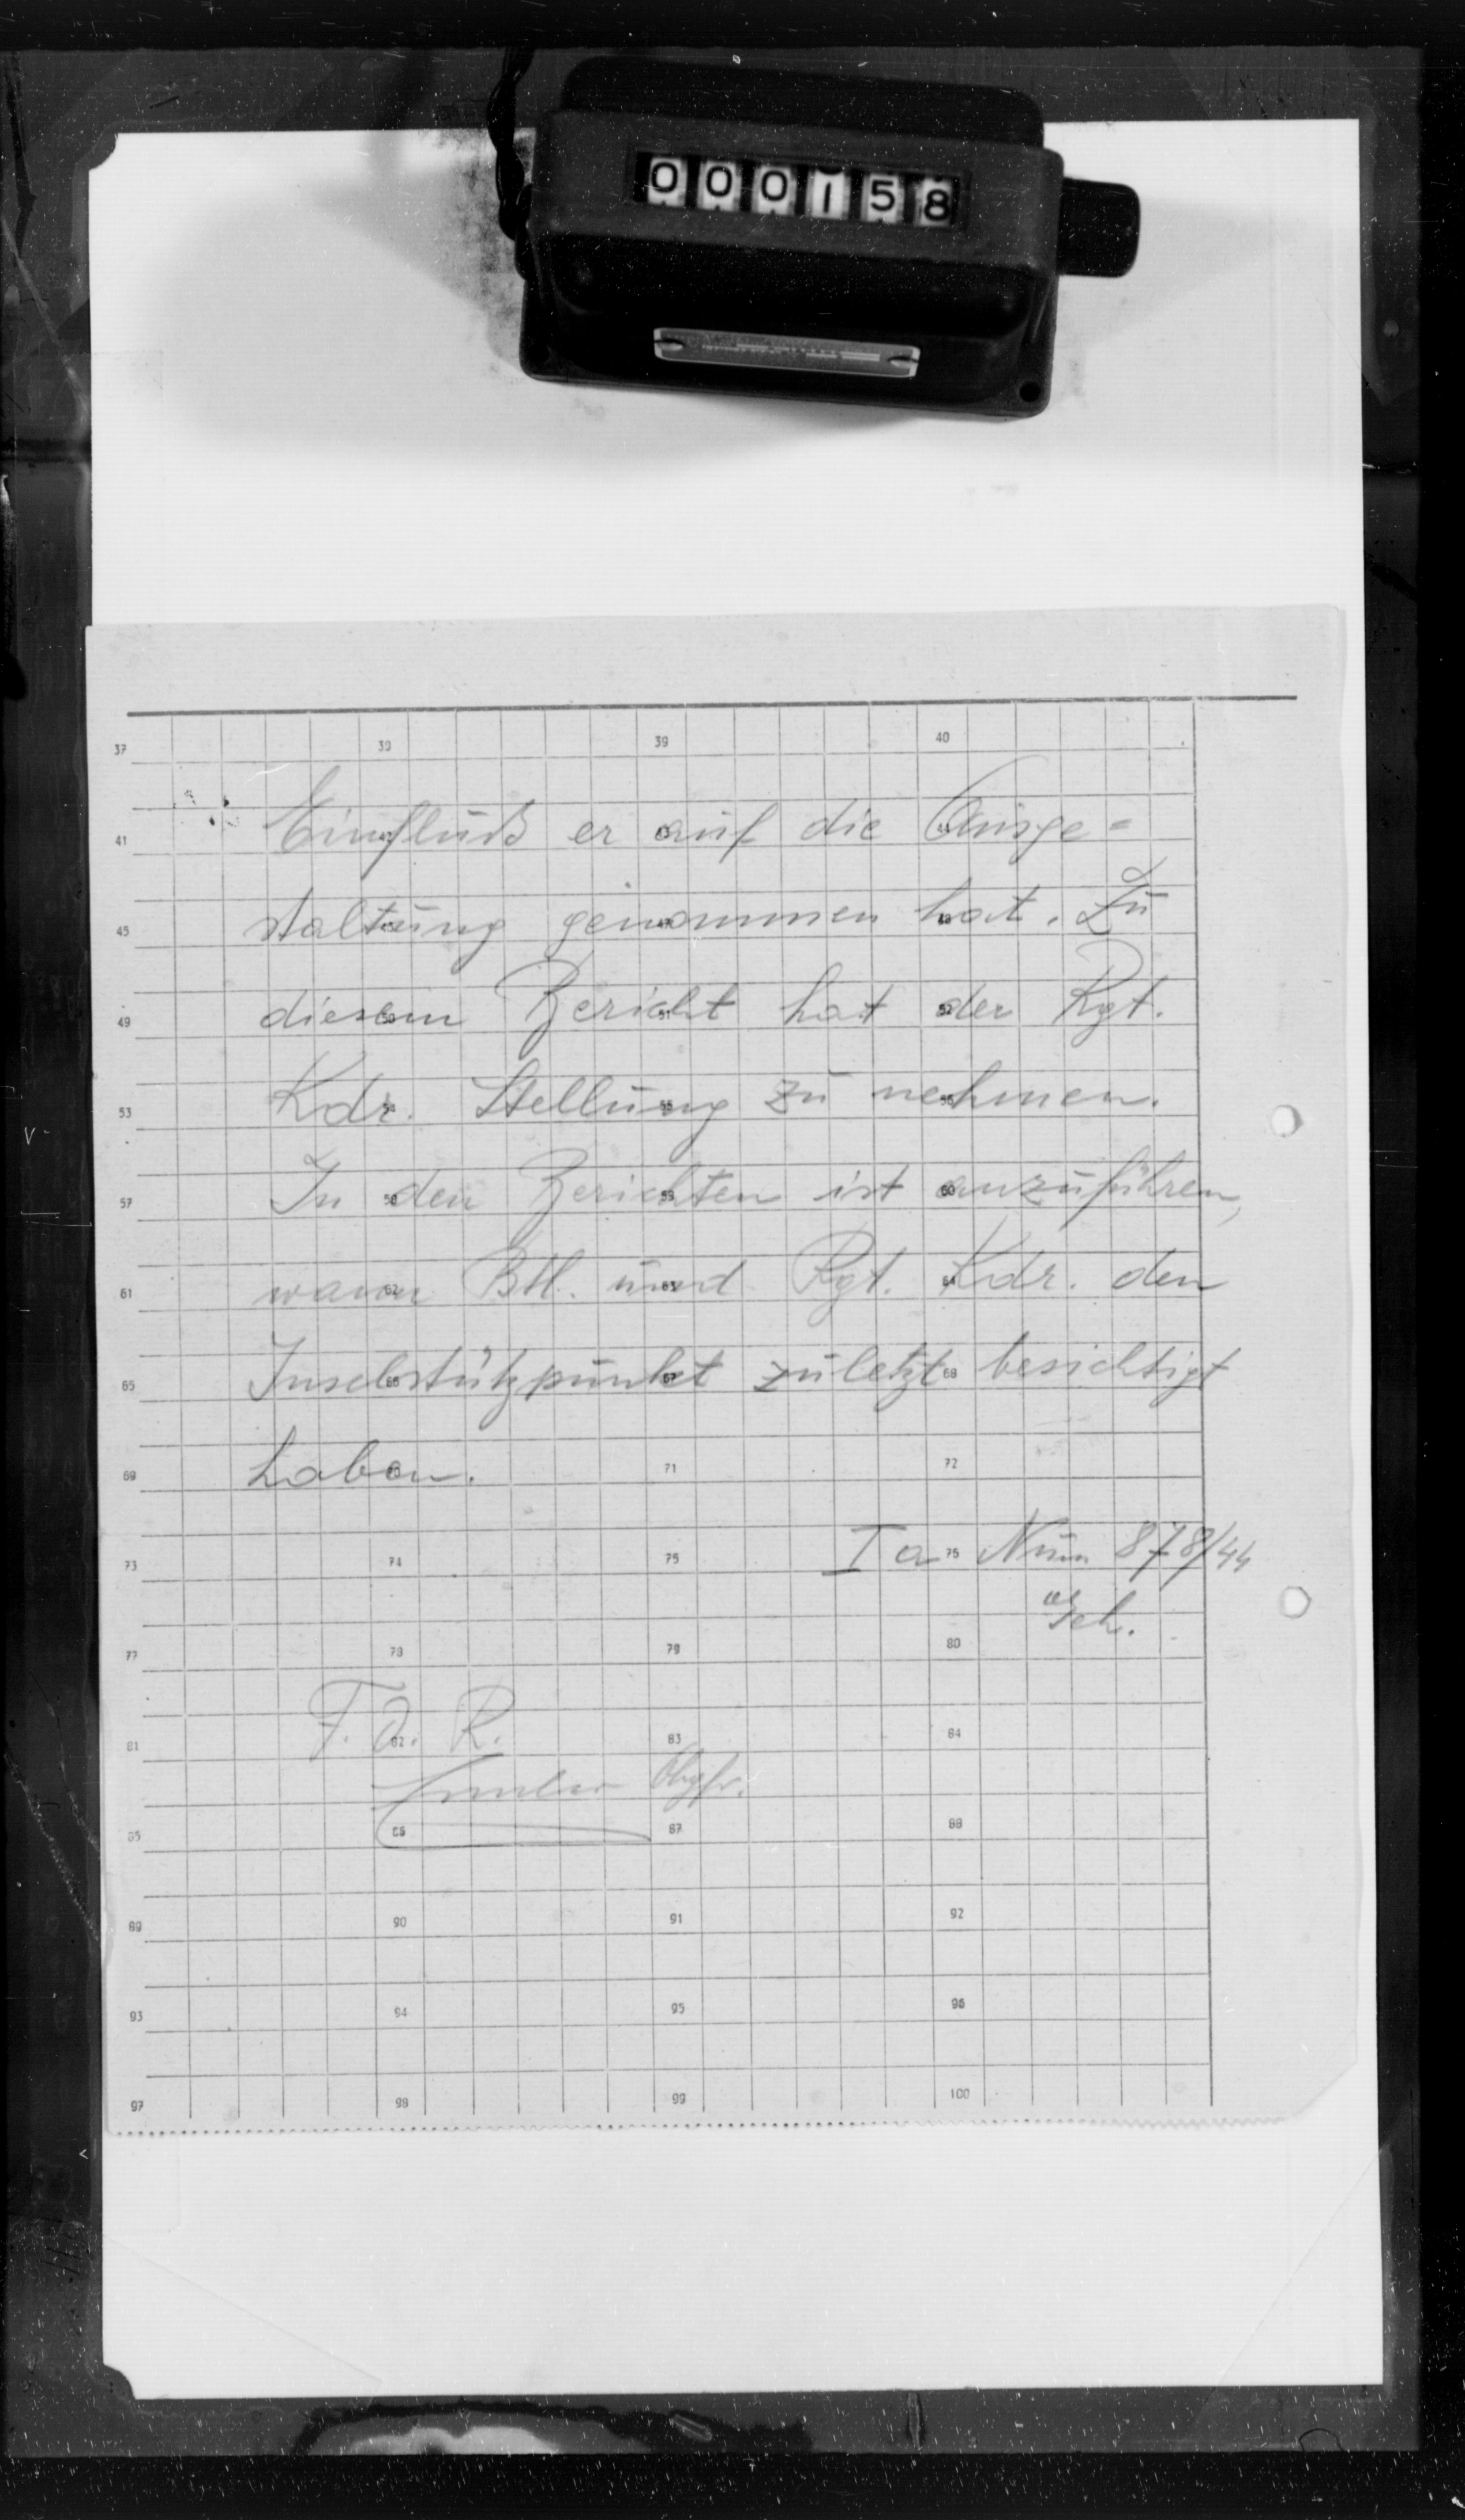 000158
37 39 39 40
41 Einfluß er auf die Ausge=
45 staltung genommen hat. Zu
49 diesem Bericht hat der Rgt.
53 Kdr. Stellung zu nehmen.
57 In den Berichten ist anzuführen,
61 wann Btl. und Rgt. Kdr. den
65 Inselstützpunkt zuletzt besichtigt
69 haben. 71 72
73 74 75 Ia Num 878/44
geh.
77 78 79 80
F. d. R.
81 82 83 84
Obgfr.
85 86 87 88
89 90 91 92
93 94 95 96
97 98 99 100